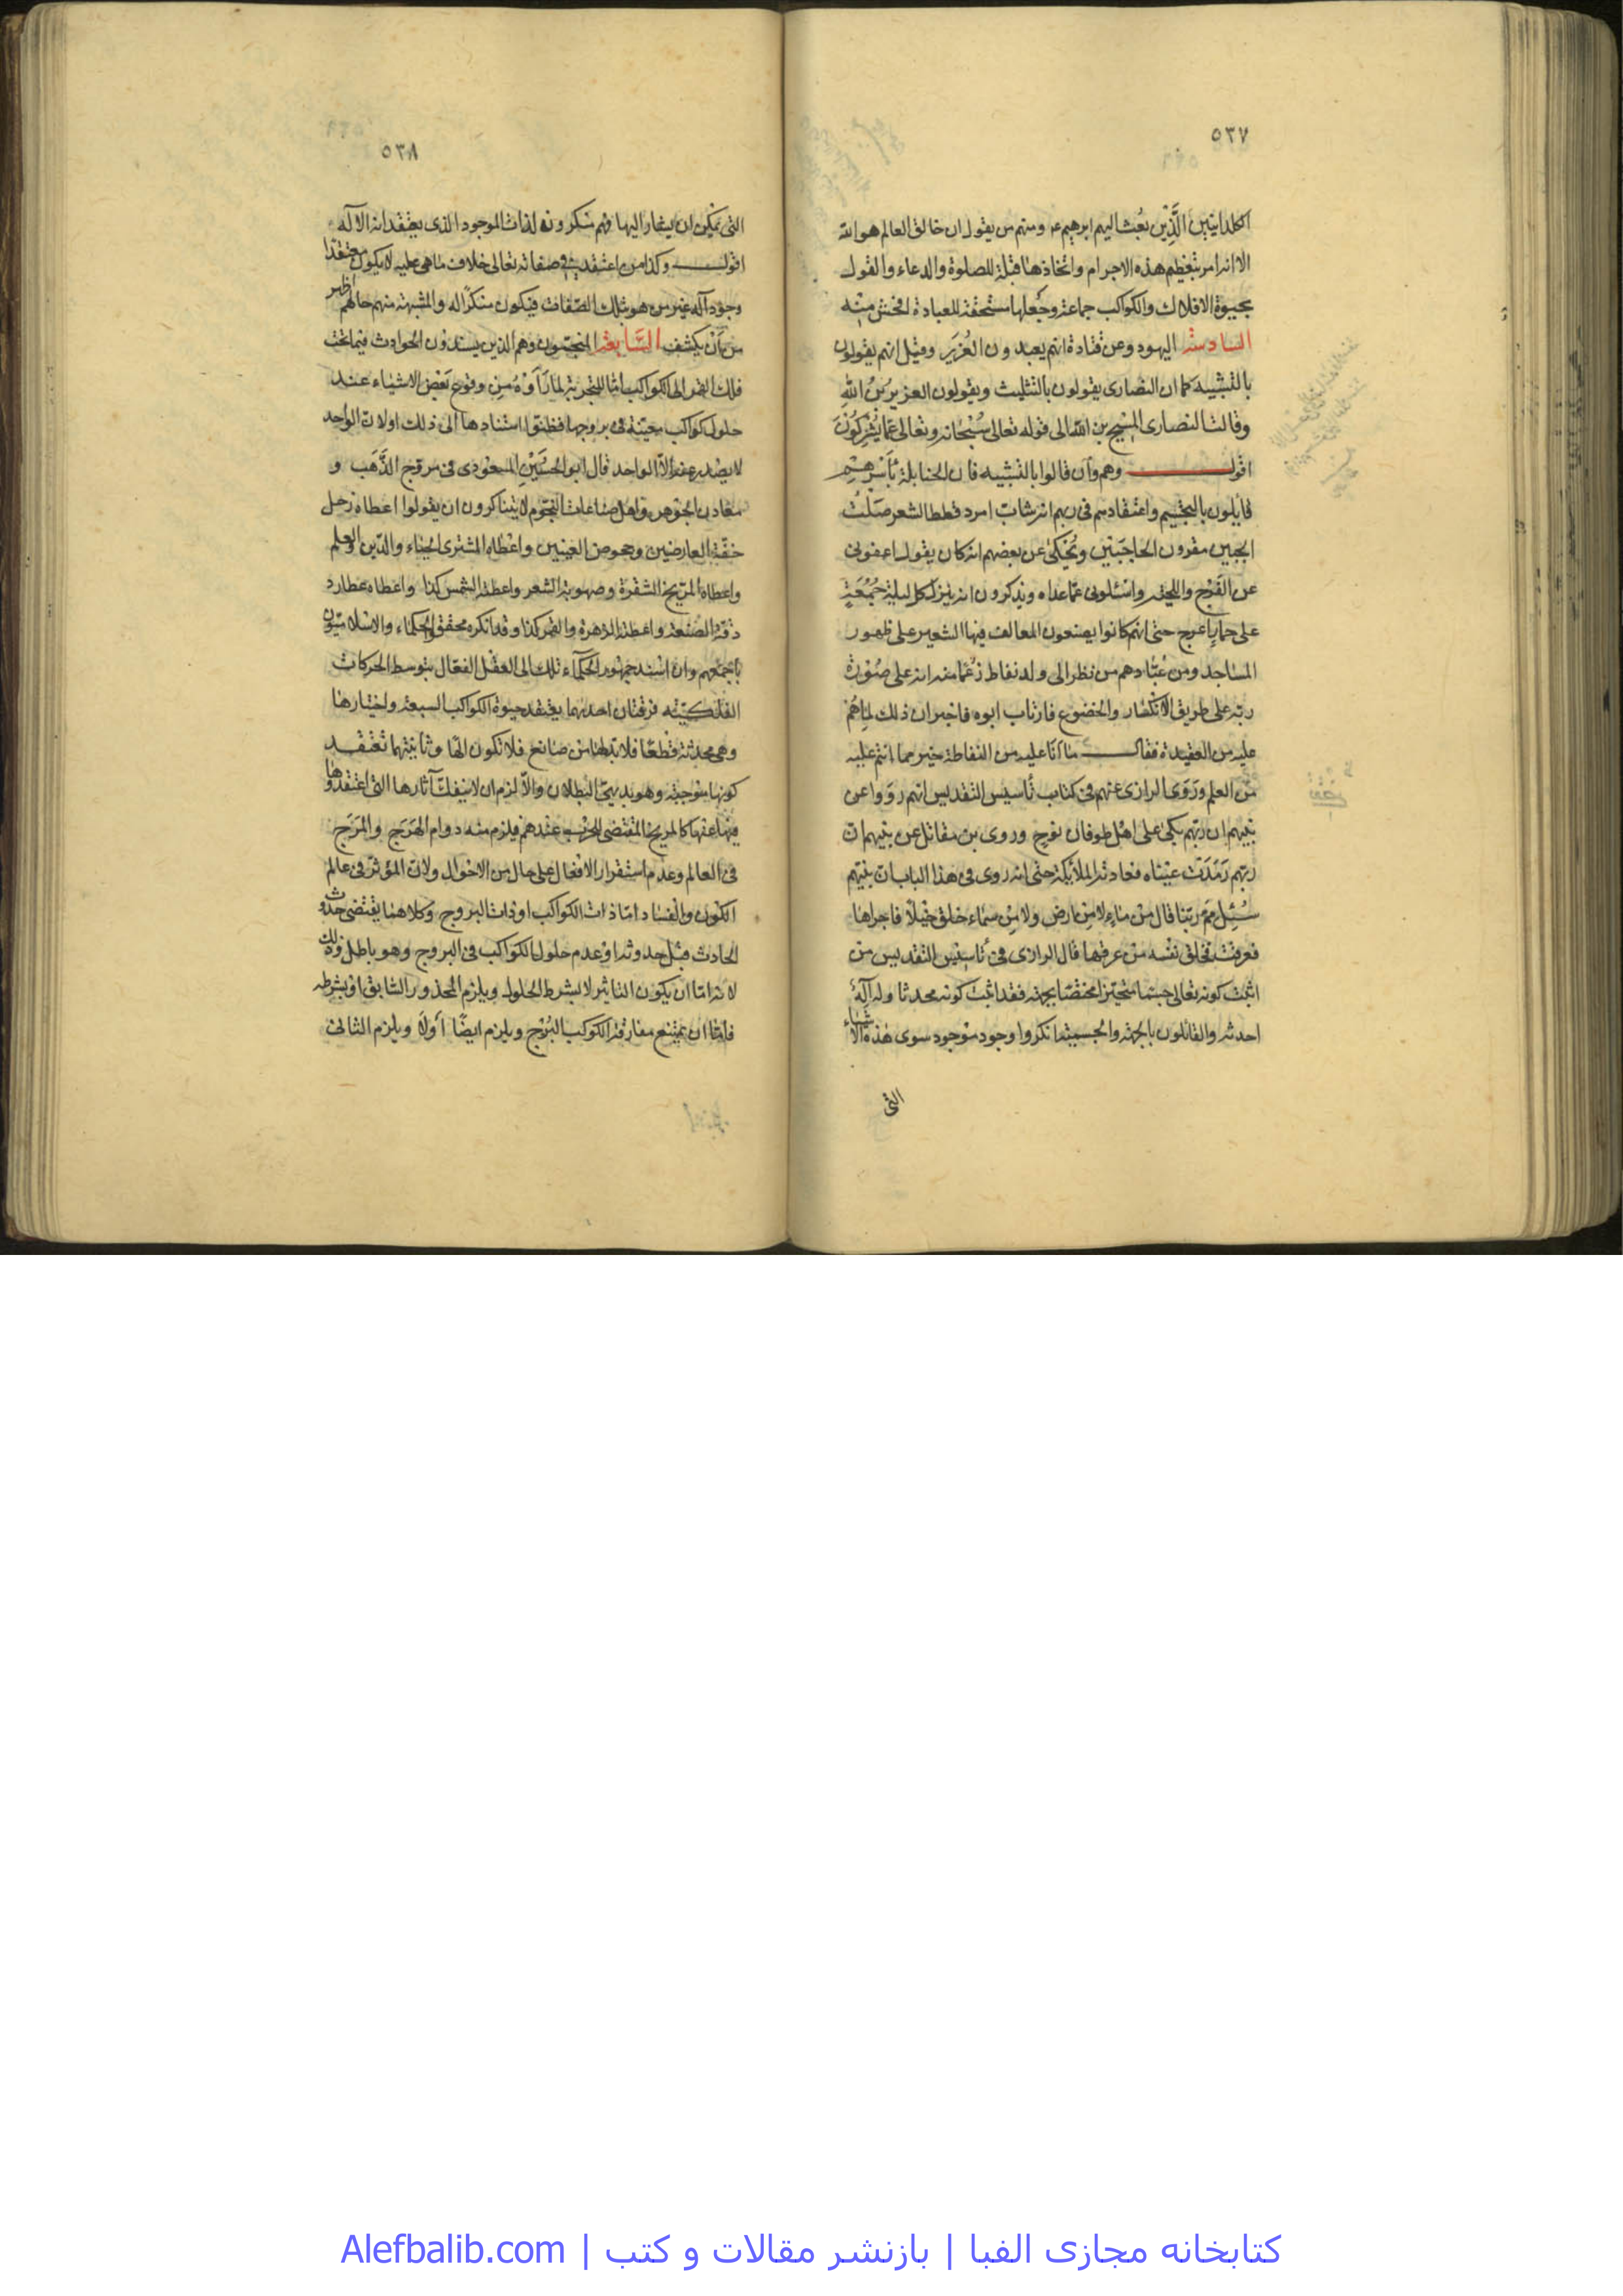 ٥٣٧
الكلدانيين الَّذِين بُعِث اليهم ابرهيم عم ومنهم من يقول ان خالق العالم هو الله
الا انه امر بتعظيم هذه الاجرام واتخاذها قبلة للصلوة والدعاء والقول
بحيوة الافلاك والكواكب جماعة وجعلها مستحقة للعبادة افحش منه
السادسة اليهود وعن قتادة انهم يعبدون العُزَير وقيل انهم يقولون
بالتشبيه كما ان النصارى يقولون بالتثليث ويقولون العزير بن الله
وقالت النصارى المسيح بن الله الى قوله تعالى سُبْحانه وتعالى عَمّا يُشْرِكُونَ
اقول وهم وان قالوا بالتشبيه فان الحنابلة بأسرهم
قايلون بالتجسيم واعتقادهم فى ربهم انه شاب امرد قطط الشعر صَلْت
الجبين مقرون الحاجبين ويُحكى عن بعضهم انه كان يقول اعفونى
عن الفَرْج واللحية واسئلونى عمّا عداه ويذكرون انه ينزل كل ليلة جُمُعَةٍ
على حمار اعرج حتى انهم كانوا يصنعون المعالف فيها الشعير على ظهور
المساجد ومن عُبّادهم من نظر الى ولد نفاط زَعْمًا منه انه على صُوْرة
ربّه على طريق الانكسار والخضوع فارتاب ابوه فاخبر ان ذلك لما هُمْ
عليه من العقيدة فقال ما انا عليه من النفاطة خير مما انتم عليه
من العلم ورَوَى الرازى عنهم فى كتاب تأسيس التقديس انهم رَوَوا عن
نبيهم ان ربّهم بكى على اهل طوفان نوح وروى بن مقاتل عن نبيهم ان
ربّهم رَمَدَت عيناه فعادته الملائكة حتى انه روى فى هذا الباب ان نبيّهم
سُئِل مِمَّ ربّنا قال من ماء لا من ارض ولا من سماء خلق خيلًا فاجراها
فعرقت فخلق نفسه من عرقها قال الرازى فى تأسيس التقديس من
اثبت كونه تعالى جسما متحيّزا مختصّا بجهة فقد اثبت كونه محدثا وله آلهٌ
احدثه والقائلون بالجهة والجسمية انكروا وجود موجود سوى هذه الاشياء
التى
٥٣٨
التى يمكن ان يشار اليها فهم منكرون لذات الموجود الذى يعتقد انه الآله
اقول وكذا من اعتقد فى صفاته تعالى خلاف ما هى عليه لا يكون معتقدا
وجود آله غير من هو بتلك الصّفات فيكون منكرًا له والمشبهة منهم حالهم اظهر
من اَنْ يكشف السَّابعة المنجّمون وهم الذين يسندون الحوادث فيما تحت
فلك القمر الى الكواكب امّا للتجربة لما رَأَوْهُ من وقوع بَعْض الاشياء عند
حلول كواكب معيّنة فى بروجها فظنّوا استنادها الى ذلك او لان الواحد
لا يصْدر عنه الّا الواحد قال ابو الحُسَيْن المسعودى فى مروج الذَّهَب و
معادن الجَوْهر واهل صناعات النجوم لا يتناكرون ان يقولوا اعطاه زحل
خفّة العارضين وجحوظ العينين واعْطاه المشترى الحياء والدّين والعلم
واعطاه المرّيخ الشقرة وصهوبة الشعر واعطته الشمس كذا واعطاه عطارد
دقّة الصّنعة واعطته الزهرة والقمر كذا وقد انكره محققوا الحكماء والاسلاميّون
باجمعهم وان اسند جمهور الحكماء تلك الى العقل الفعّال بتوسط الحركات
الفلكيّة فرقتان احديهما يعتقد حيوة الكواكب السبعة واختيارها
وهى محدثة قطعًا فلا بدّ لها من صانع فلا تكون الهًا وثانيتهما تعْتقد
كونها موجبة وهو بديهىّ البطلان والّا لزم ان لا ينفكّ آثارها التى اعتقدوها
فيها عنها كالمريخ المقتضى للحرب عندهم فيلزم منه دوام الهَرَج والمَرَج
فى العالم وعدم استقرار الافعال على حال من الاحوال ولان المؤثّر فى عالم
الكون والفساد امّا ذات الكواكب او ذات البروج وكلاهما يقتضى حدُوث
الحادث قبل حدوثه او عدم حلول الكواكب فى البروج وهو باطل وذلك
لانه امّا ان يكون التاثير لا بشرط الحلول ويلزم المحذور السّابق او بشرطه
فامّا ان يمتنع مفارقة الكوكب البُرْج ويلزم ايضًا اوّلا ويلزم الثانى
كتابخانه مجازی الفبا | بازنشر مقالات و کتب | Alefbalib.com